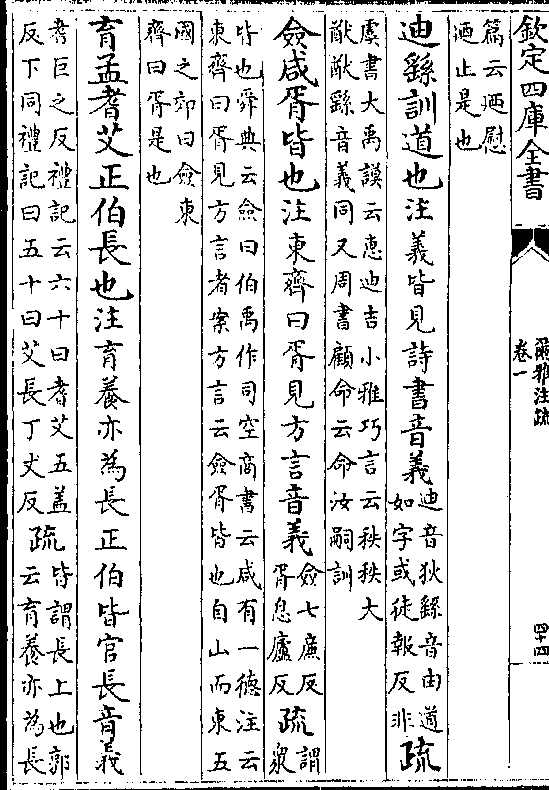 欽定四庫全書
爾雅注疏
卷一
四十四
篇云廼慰
廼止是也
迪繇訓道也注義皆見詩書音義
迪音狄繇音由道
如字或徒報反非
疏
虞書大禹謨云惠迪吉小雅巧言云秩秩大
猷猷繇音義同又周書顧命云命汝嗣訓
僉咸胥皆也注東齊曰胥見方言音義
僉七廉反
胥息廬反
疏
謂
衆
皆也舜典云僉曰伯禹作司空商書云咸有一德注云
東齊曰胥見方言者案方言云僉胥皆也自山而東五
國之郊曰僉東
齊曰胥是也
育孟耆艾正伯長也注育養亦為長正伯皆官長音義
耆巨之反禮記云六十曰耆艾五盖
反下同禮記曰五十曰艾長丁丈反
疏
皆謂長上也郭
云育養亦為長